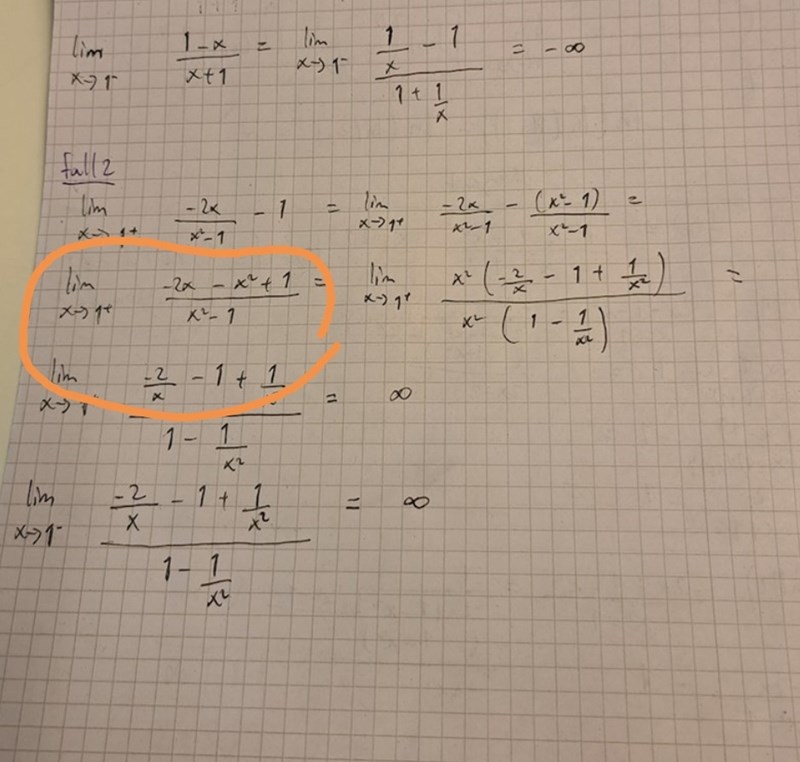 lim x→1⁻ (1-x)/(x+1) = lim x→1⁻ (1/x - 1)/(1 + 1/x) = -∞
fall 2
lim x→1⁺ -2x/(x²-1) - 1 = lim x→1⁺ -2x/(x²-1) - (x²-1)/(x²-1) =
lim x→1⁺ (-2x - x² + 1)/(x²-1) = lim x→1⁺ x²(-2/x - 1 + 1/x²)/x²(1 - 1/x²) =
lim x→1 (-2/x - 1 + 1/)/(1 - 1/x²) = ∞
lim x→1⁻ (-2/x - 1 + 1/x²)/(1 - 1/x²) = ∞